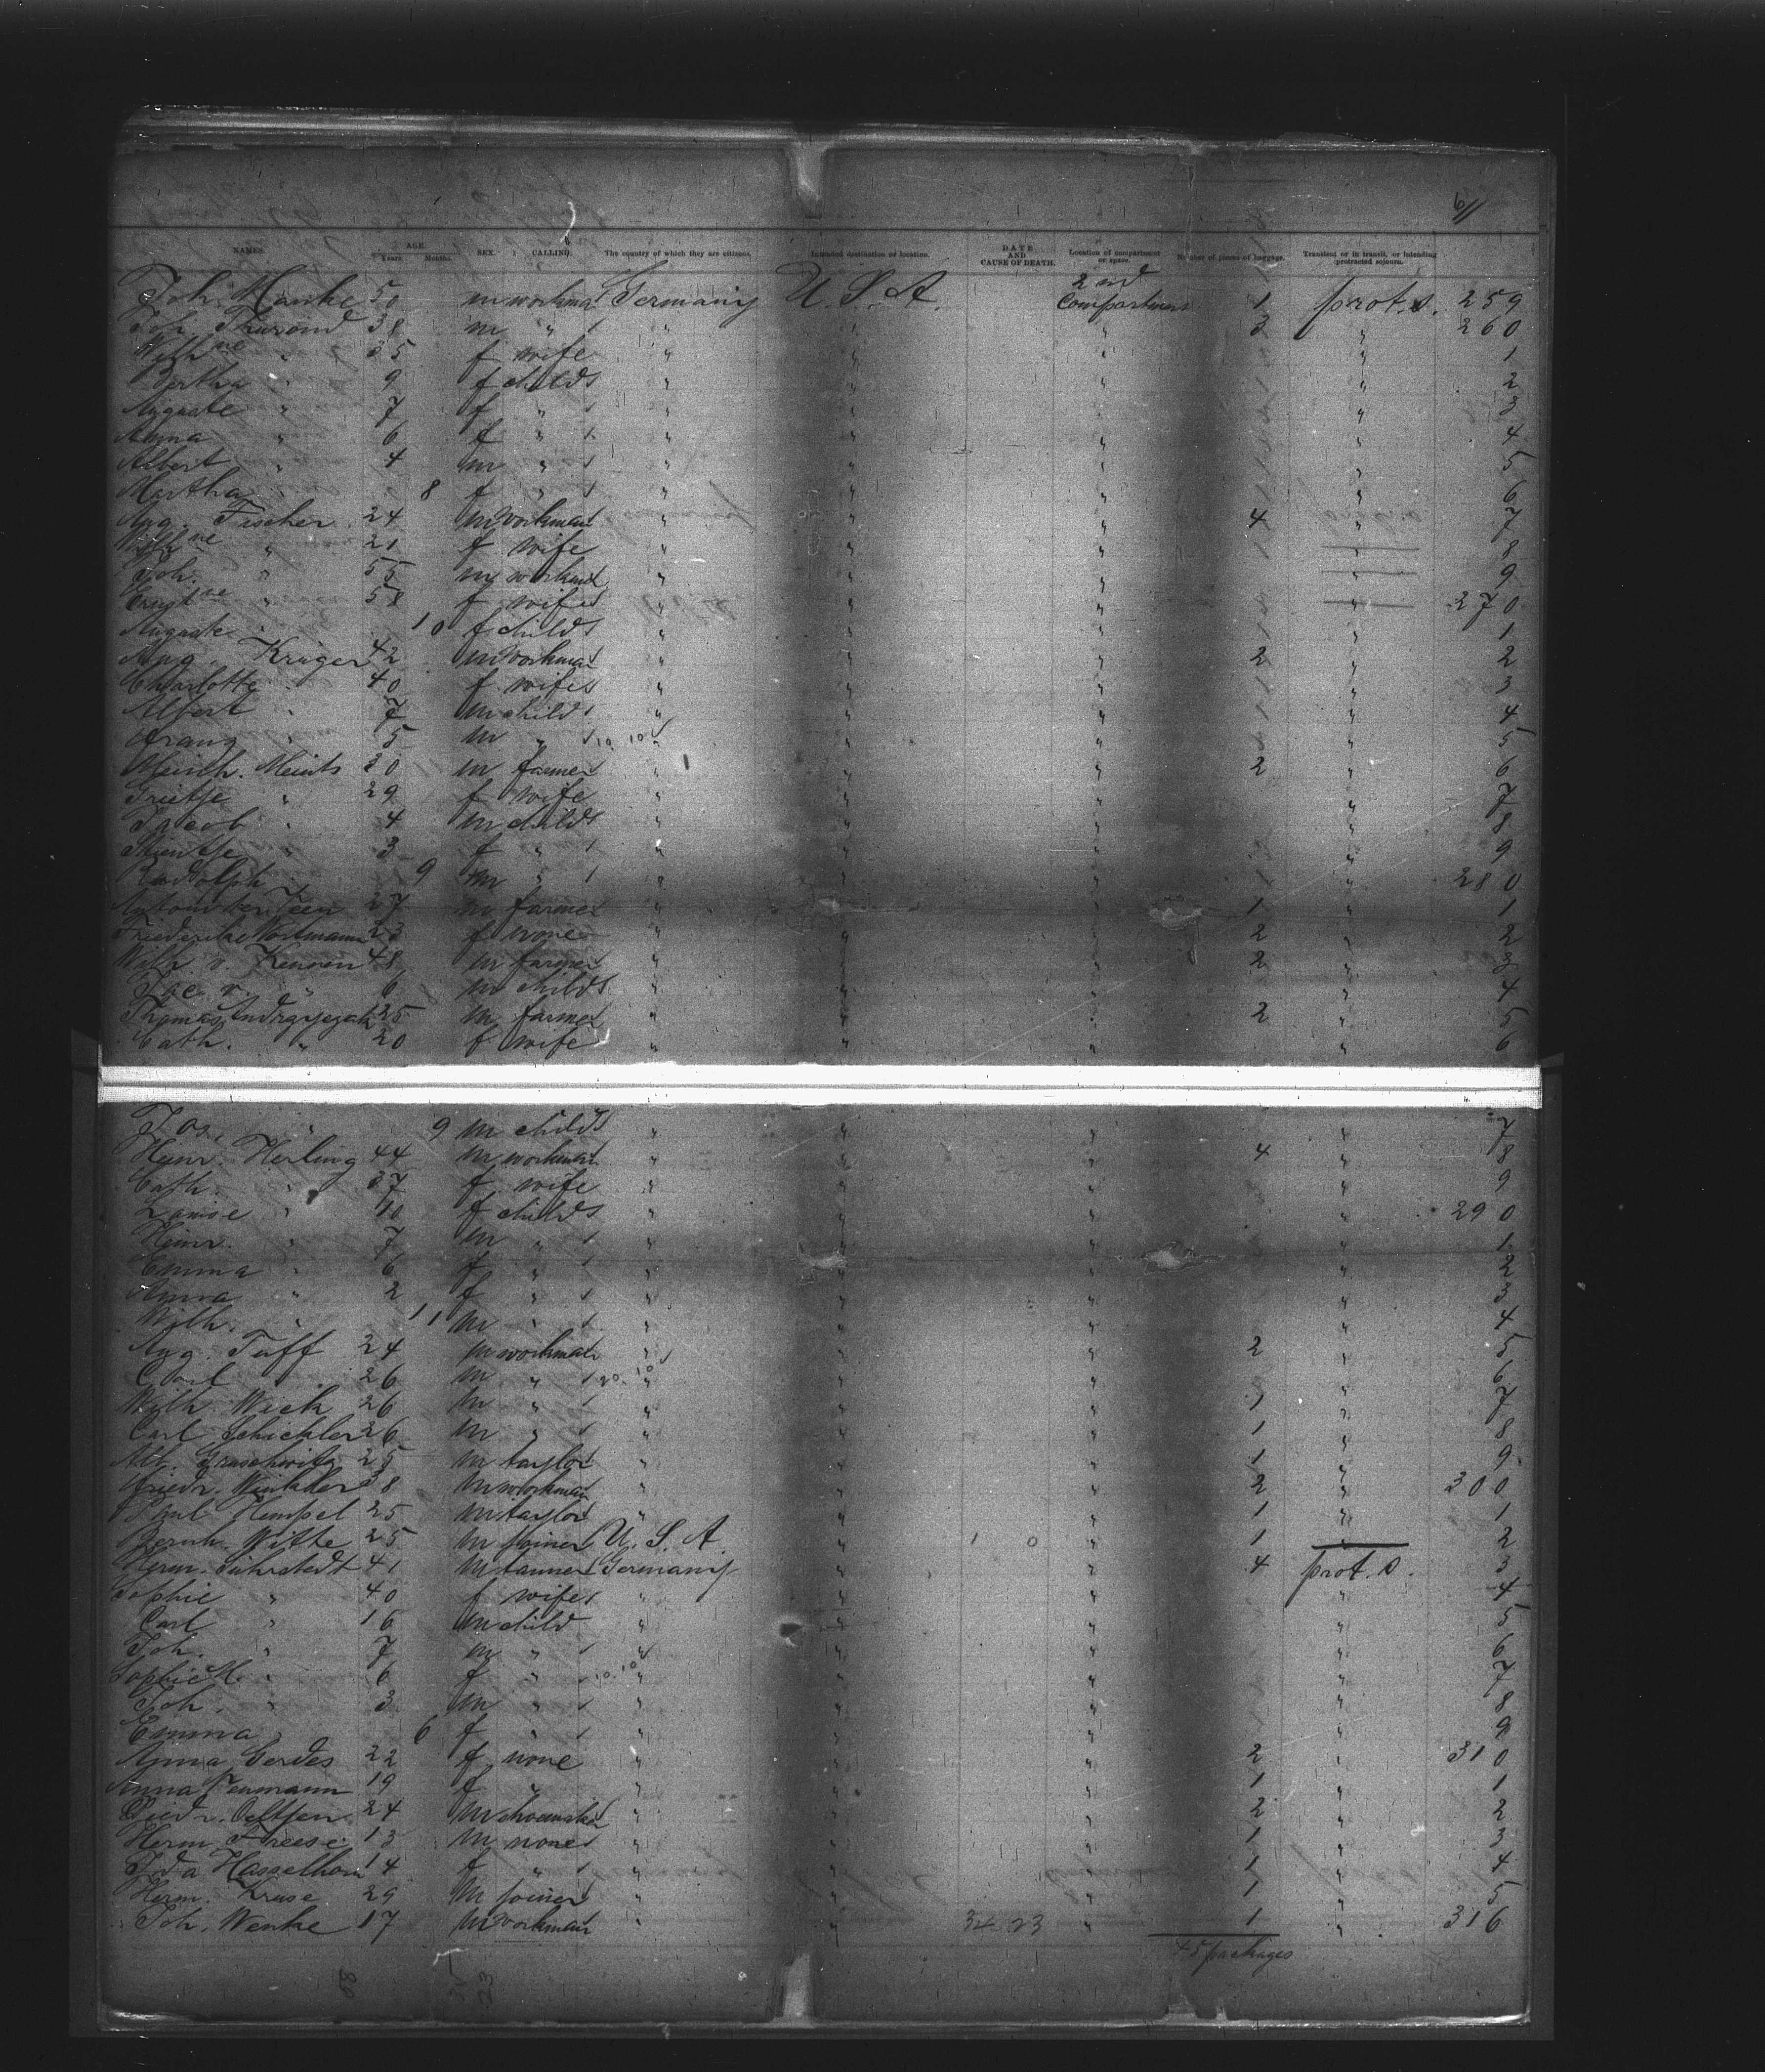 6/1
NAMES. AGE. Years. Months. SEX. CALLING. The country of which they are citizens. Intended destination or location. DATE AND CAUSE OF DEATH. Location of compartment or space. Number of pieces of luggage. Transient or in transit, or intending protracted sojourn.
Joh. Manke 50 m workman Germany U. S. A. 2nd Compartment 1 prot. s. 259
Joh. 38 m " " " " 3 " 260
Wilhne " 35 f wife " " " " 1
Bertha " 9 f child " " " " 2
Auguste " 7 f " " " " " 3
Anna " 6 f " " " " " 4
Albert " 4 m " " " " " 5
Martha " 8 f " " " " " 6
Aug. Fischer 24 m workman " " " 4 " 7
Wilhne " 21 f wife " " " " 8
Joh. " 55 m workman " " " " 9
Ernstne " 58 f wife " " " " 270
Auguste " 10 f child " " " " 1
Aug. Krüger 42 m workman " " " 2 " 2
Charlotte " 40 f wife " " " " 3
Albert " 7 m child " " " " 4
Franz " 5 m " " " " " 5
Meinh. Meints 30 m farmer " " " 2 " 6
Trietje " 29 f wife " " " " 7
Jacob " 4 m child " " " " 8
" 3 f " " " " " 9
Rudolph " 9 m " " " " " 280
27 m farmer " " " 1 " 1
Friederike Wortmann 23 f none " " " 2 " 2
Wilh. v. 48 m farmer " " " 2 " 3
v. " 6 m child " " " " 4
Thomas 25 m farmer " " " 2 " 5
Cath. " 20 f wife " " " " 6
Jos. " 9 m child " " " " 7
Heinr. Herling 44 m workman " " " 4 " 8
Cath. " 37 f wife " " " " 9
Louise " 10 f child " " " " 290
Heinr. " 7 m " " " " " 1
Emma " 6 f " " " " " 2
Anna " 2 f " " " " " 3
Wilh. " 11 m " " " " " 4
Aug. Tuff 24 m workman " " " 2 " 5
Carl " 26 m " " " " " 6
Wilh. Wick 26 m " " " " 1 " 7
Carl Schickler 26 m " " " " 1 " 8
Alb. Gruschwitz 25 m taylor " " " 1 " 9
Friedr. Winkler 38 m workman " " " 2 " 300
Paul Hempel 25 m taylor " " " 1 " 1
Bernh. Witte 25 m joiner U. S. A " " 1 2
Herm. Suhrstedt 41 m tanner Germany " " 4 prot. s. 3
Sophie " 40 f wife " " " " 4
Carl " 16 m child " " " " 5
Joh. " 7 m " " " " " 6
Sophie M. " 6 f " " " " " 7
Joh. " 3 m " " " " " 8
Emma " 6 f " " " " " 9
Anna Gerdes 22 f none " " " 2 " 310
Anna 19 f " " " " 1 " 1
Diedr. Oeltjen 24 m shoemaker " " " 2 " 2
Herm. Freese 13 m none " " " 1 " 3
Ida Hasselhorn 14 f " " " " 1 " 4
Herm. Kruse 29 m joiner " " " 1 " 5
Joh. Wenke 17 m workman " " 34 23 " 1 " 316
45 packages